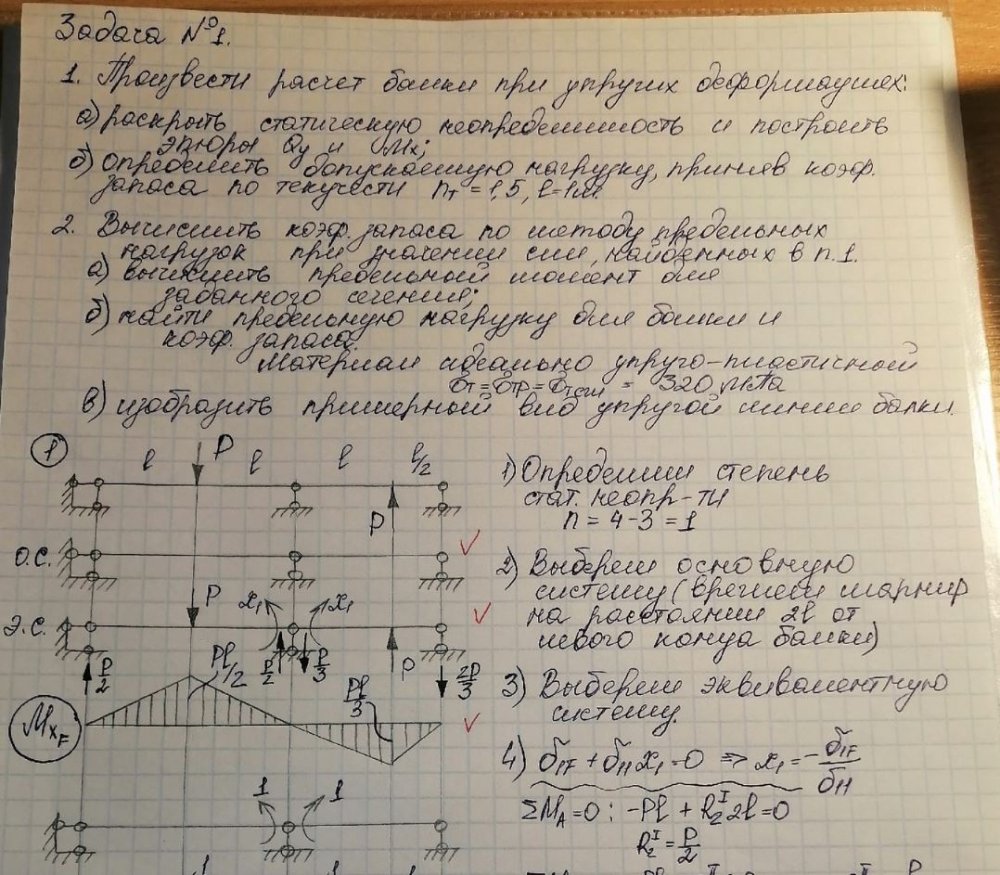 Задача №1.
1. Произвести расчет балки при упругих деформациях:
а) раскрыть статическую неопределимость и построить
эпюры Qy и Mx;
б) определить допускаемую нагрузку, приняв коэф.
запаса по текучести nт = 1,5, l=1м.
2. Вычислить коэф. запаса по методу предельных
нагрузок при значении сил, найденных в п.1.
а) вычислить предельный момент для
заданного сечения;
б) найти предельную нагрузку для балки и
коэф. запаса.
Материал идеально упруго-пластичный
σт = σтр = σтсж = 320 МПа
в) изобразить примерный вид упругой линии балки.
1
l P l l l/2
P
О.С.
Э.С. P X1 X1
P/2 P/2 P/3 P 2P/3
Pl/2
Pl/3
MxF
1 1
1) Определим степень
стат. неопр-ти
n = 4-3 = 1
2) Выберем основную
систему (врежем шарнир
на расстоянии 2l от
левого конца балки)
3) Выберем эквивалентную
систему.
4) δ1F + δ11 X1 = 0 => X1 = - δ1F/δ11
ΣMA = 0: -Pl + R2^I 2l = 0
R2^I = P/2